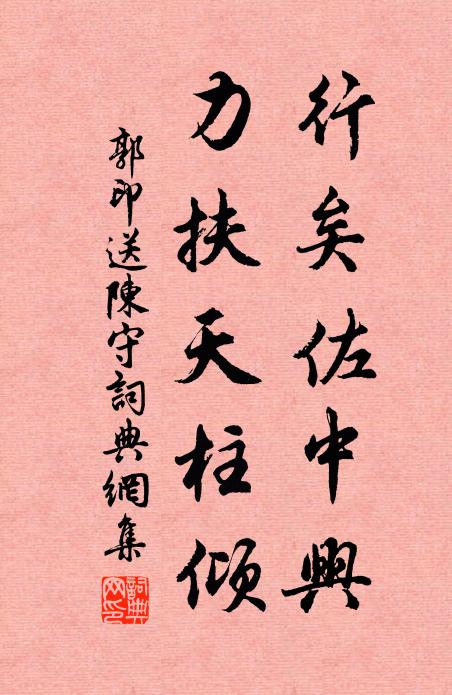 行矣佐中興
力扶天柱傾
郭印送陳守詞典網集
詞典網印